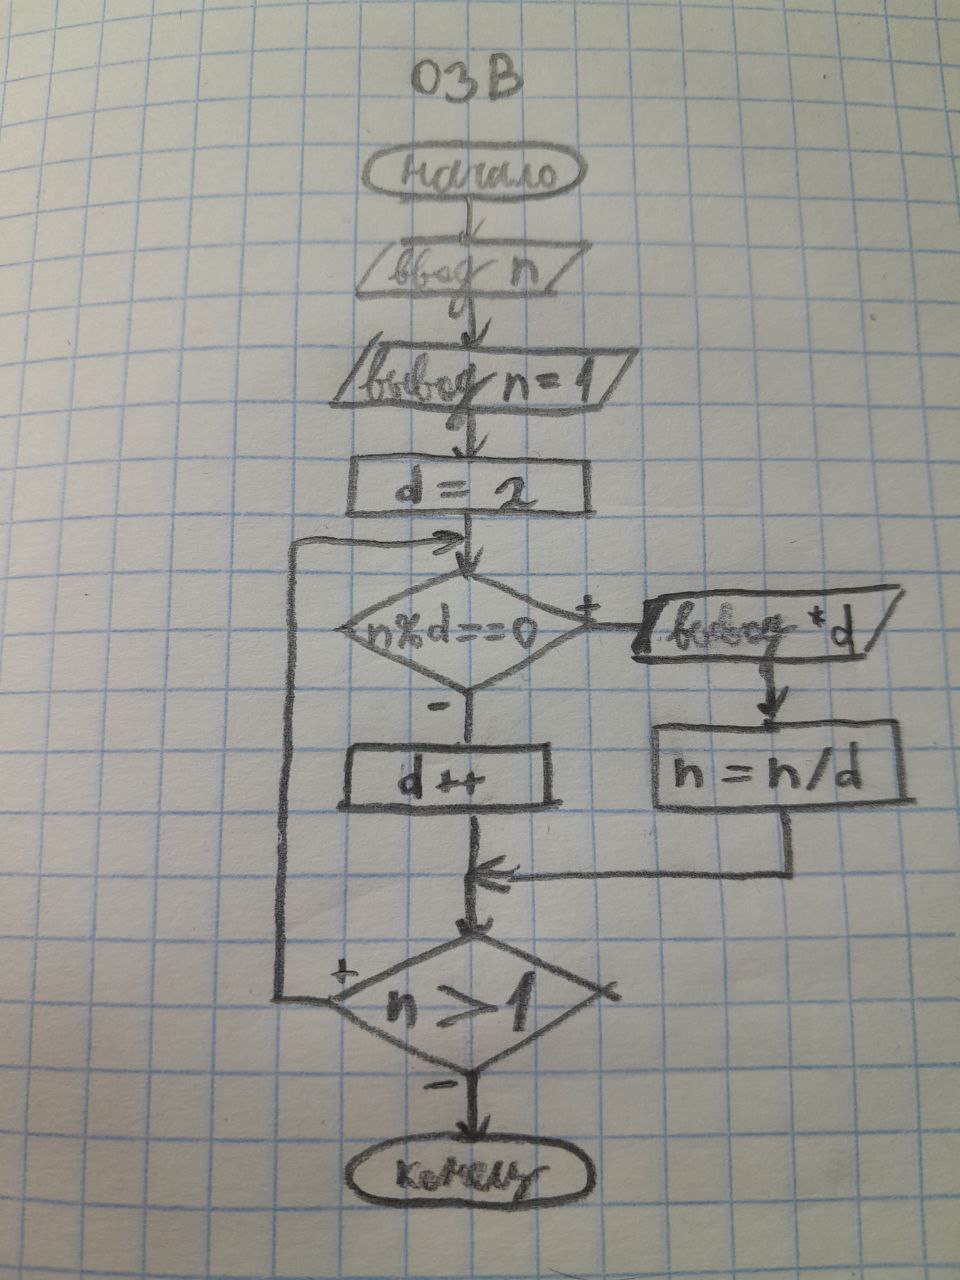 03В
начало
ввод n
вывод n=1
d = 2
n%d==0
+
вывод *d
-
d++
n = n/d
+
n > 1
-
конец